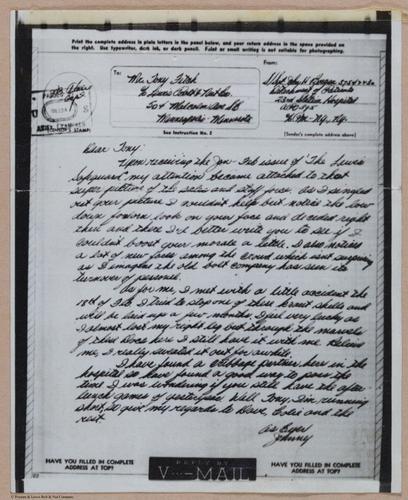 Print the complete address in plain letters in the panel below, and your return address in the space provided on the right. Use typewriter, dark ink, or dark pencil. Faint or small writing is not suitable for photographing.
To:
From:
Mr. Tony
% Lewis Bolt & Nut Co.
504 Malcolm Ave SE
Minneapolis - Minnesota
Detachment of Patients
23rd Station Hospital
(CENSOR'S STAMP)
See Instruction No. 2
(Sender's complete address above)
Dear Tony:
Upon receiving the Jan-Feb issue of "The Lewis
my attention became attached to that
super picture of the sales and staff force. As I singled
out your picture I couldn't help but notice the low
down forlorn look on your face and decided right
then and there I'd better write you to see if I
couldn't boost your morale a little. I also notice
a lot of new faces among the crowd which isn't surprising
as I imagine the old bolt company has seen its
turnover of personnel.
As for me, I met with a little accident the
18th of Feb. I tried to stop one of those kraut shells and
will be laid up a few months. I'm just very lucky as
I almost lost my right leg but through the marvels
of these Docs here I still have it with me. Believe
me, I really sweated it out for awhile.
I have found a cribbage partner here in the
hospital so have found a good way to pass the
time. I was wondering if you still have the after
lunch games of yesteryear. Well Tony, I'm running
short, so give my regards to Dave, and the
rest
As Ever
Johnny
HAVE YOU FILLED IN COMPLETE ADDRESS AT TOP?
REPLY BY
V···-MAIL
HAVE YOU FILLED IN COMPLETE ADDRESS AT TOP?